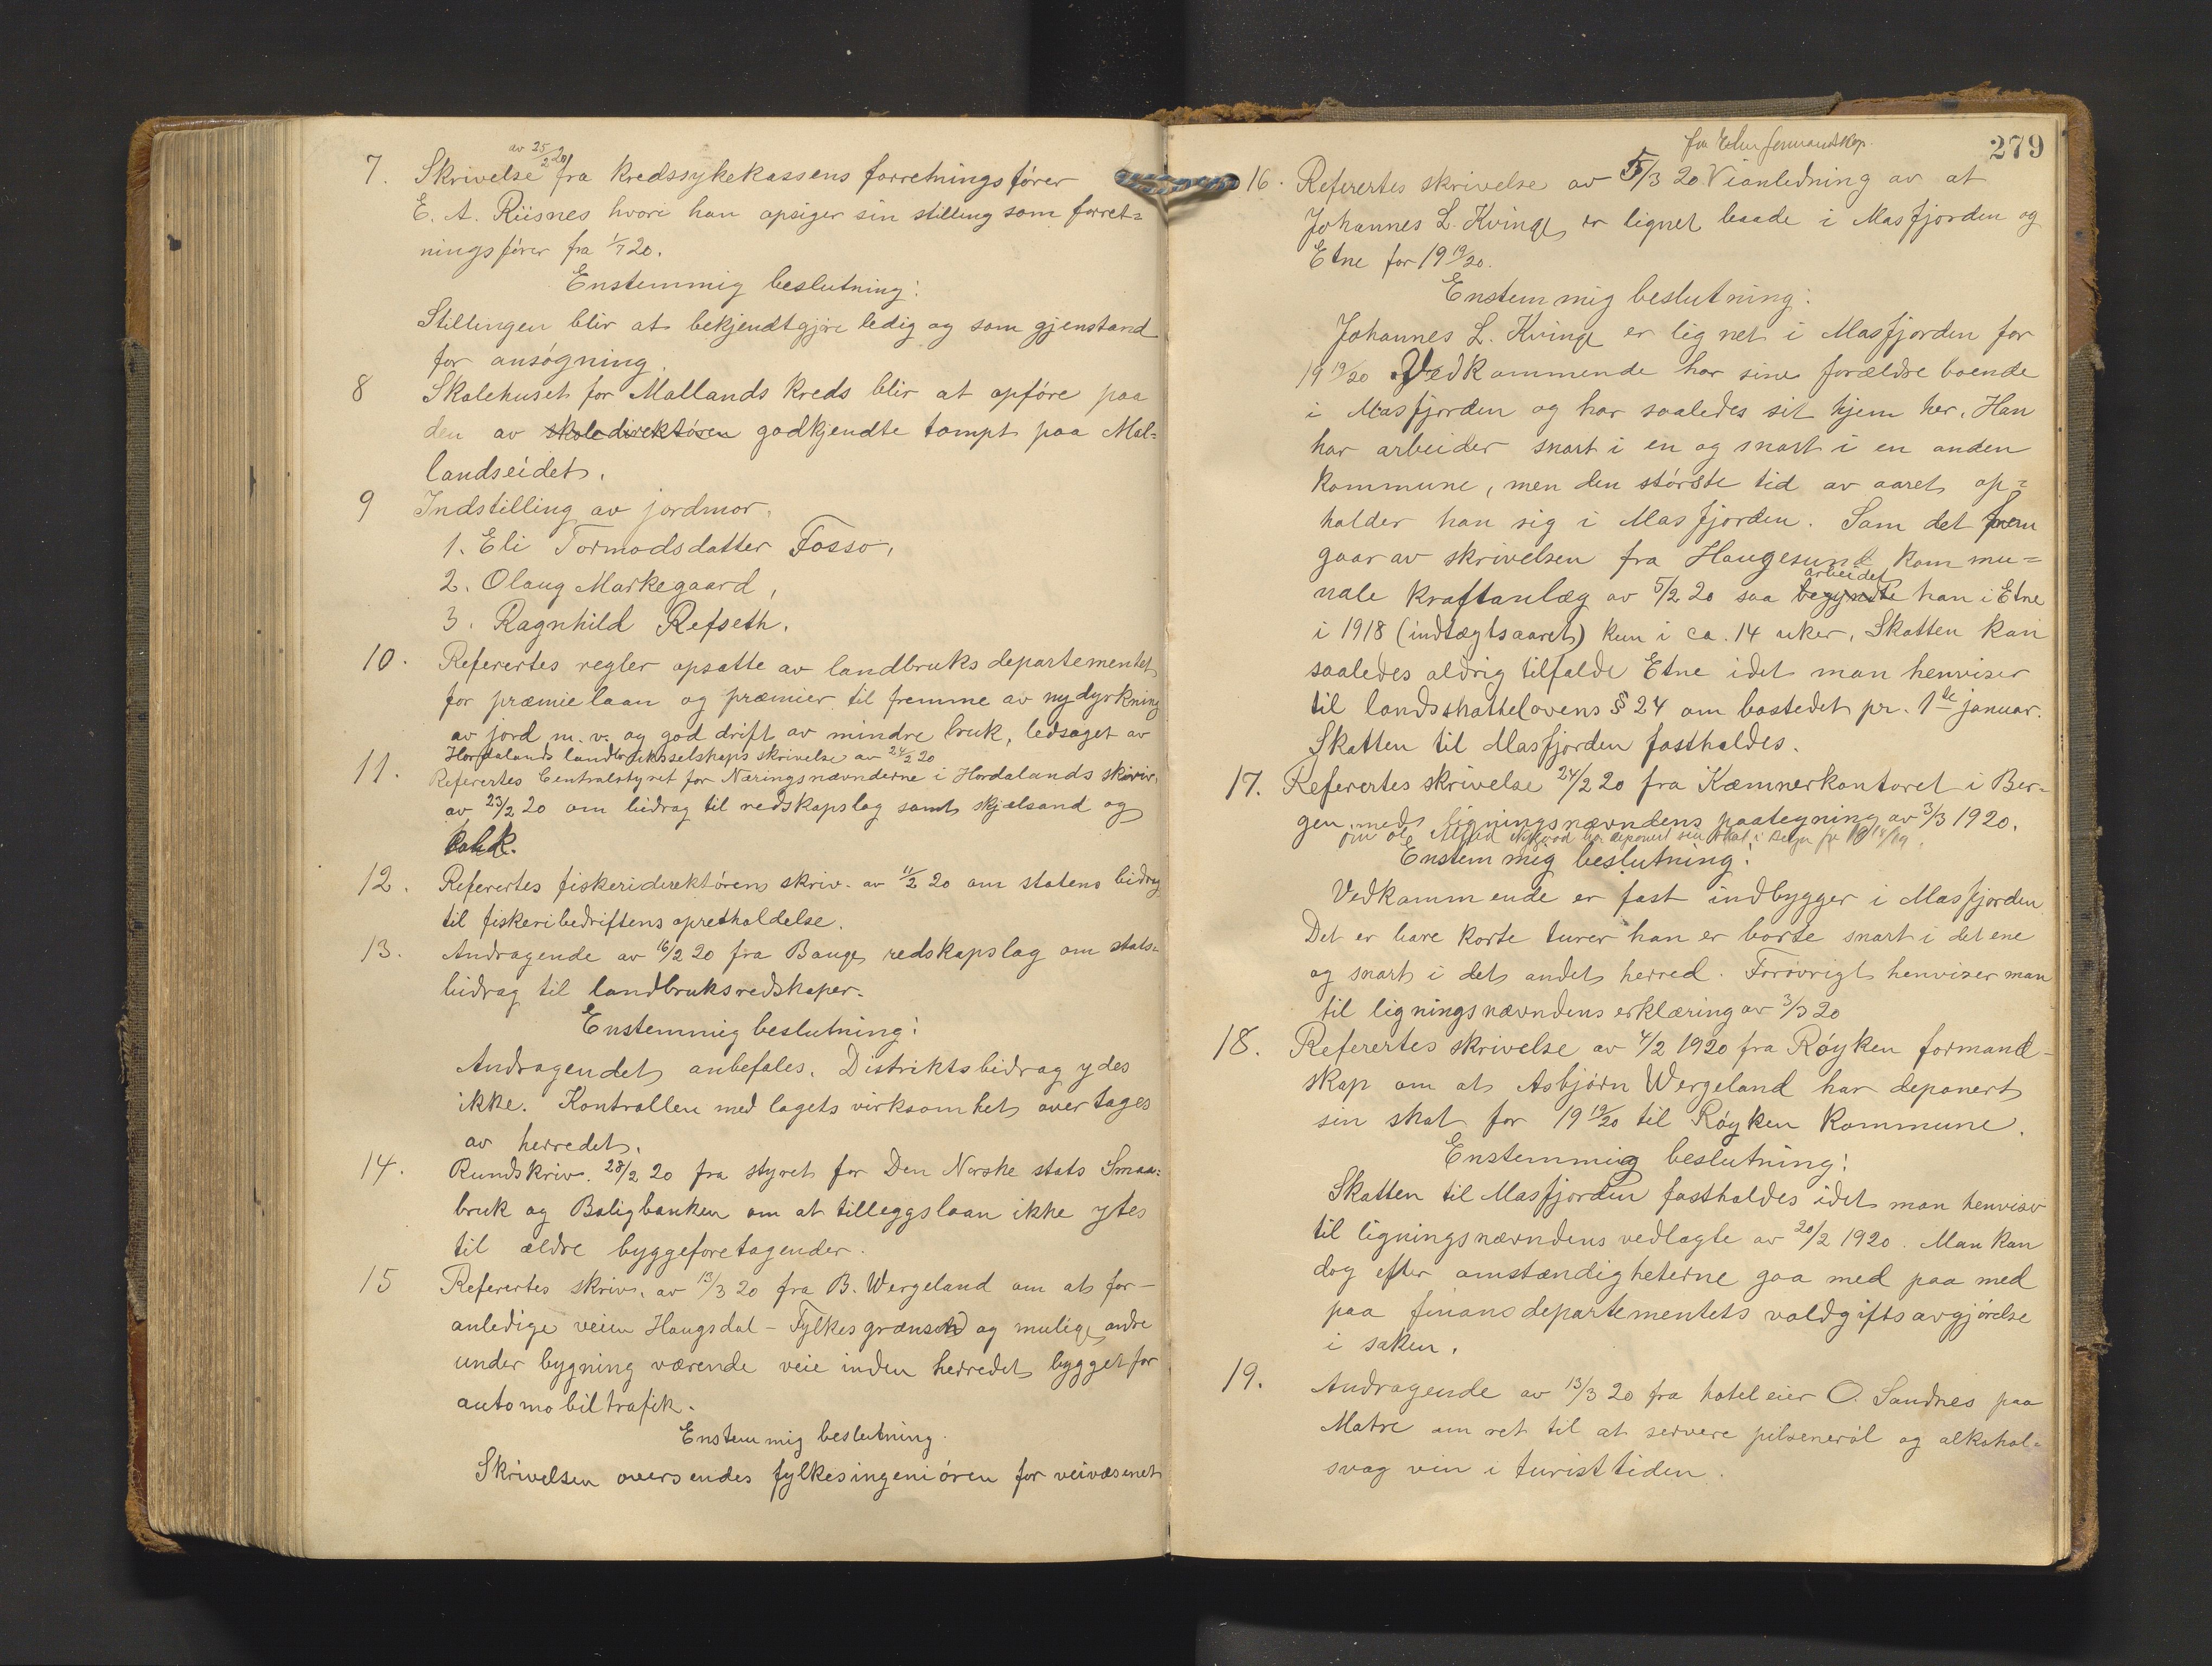 av 25/2 20
7. Skrivelse fra kredssykekassens forretningsfører
E. A. Riisnes hvori han opsiger sin stilling som forret=
ningsfører fra 1/7 20.
Enstemmig beslutning:
Stillingen blir at bekjendtgjøre ledig og som gjenstand
for ansøgning.
8 Skolehuset for Mallands kreds blir at opføre paa
den av skoledirektøren godkjendte tompt paa Mal=
landseidet.
9 Indstilling av jordmor.
1. Eli Tormodsdatter Fosso,
2. Olaug Markegaard,
3. Ragnhild Refseth.
10. Referertes regler opsatte av landbruksdepartementet
for præmielaan og præmier til fremme av nydyrkning
av jord m. v. og god drift av mindre bruk, ledsaget av
Hordalands landbruksselskaps skrivelse av 24/2 20
11. Referertes Centralstyret for Næringsnævnderne i Hordalands skriv.
av 23/2 20 om bidrag til redskapslag samt skjælsand og
kalk.
12. Referertes fiskeridirektørens skriv. av 11/2 20 om statens bidrag
til fiskeribedriftens opretholdelse.
13. Andragende av 16/2 20 fra Bauge redskapslag om stats=
bidrag til landbruksredskaper.
Enstemmig beslutning:
Andragendet anbefales. Distriktsbidrag ydes
ikke. Kontrollen med lagets virksomhet overtages
av herredet.
14. Rundskriv. 28/2 20 fra styret for Den Norske stats Smaa=
bruk og Boligbanken om at tilleggslaan ikke ytes
til ældre byggeforetagender.
15 Referertes skriv. av 13/3 20 fra B. Wergeland om at for-
anledige veien Haugsdal - Fylkesgrænsen og mulige andre
under bygning værende veie inden herredet bygget for
automobiltrafik.
Enstemmig beslutning.
Skrivelsen oversendes fylkesingeniøren for veivæsenet
279
fra Etne formandskap.
16. Referertes skrivelse av 5/3 20 Vianledning av at
Johannes L. Kvinge er lignet baade i Masfjorden og
Etne for 19 19/20.
Enstemmig beslutning:
Johannes L. Kvinge er lignet i Masfjorden for
19 19/20. Vedkommende har sine forældre boende
i Masfjorden og har saaledes sit hjem her. Han
har arbeider snart i en og snart i en anden
kommune, men den største tid av aaret op=
holder han sig i Masfjorden. Som det frem
gaar av skrivelsen fra Haugesund kommu=
arbeidet
nale kraftanlæg av 5/2 20 saa begyndte han i Etne
i 1918 (indtægtsaaret) kun i ca. 14 uker. Skatten kan
saaledes aldrig tilfalde Etne idet man henviser
til landsskattelovens § 24 om bostedet pr. 1ste januar.
Skatten til Masfjorden fastholdes.
17. Referertes skrivelse 24/2 20 fra Kæmnerkontoret i Ber=
gen med ligningsnævndens paategning av 3/3 1920.
om at har deponert sin skat i Bergen for 19 18/19.
Enstemmig beslutning:
Vedkommende er fast indbygger i Masfjorden
Det er bare korte turer han er borte snart i det ene
og snart i det andet herred. Forøvrigt henviser man
til ligningsnævndens erklæring av 3/3 20
18. Referertes skrivelse av 4/2 1920 fra Røyken formand-
skap om at Asbjørn Wergeland har deponert
sin skat for 19 19/20 til Røyken kommune.
Enstemmig beslutning:
Skatten til Masfjorden fastholdes idet man henviser
til ligningsnævndens vedlagte av 20/2 1920. Man kan
dog efter omstændigheterne gaa med paa med
paa finansdepartementets voldgiftsavgjørelse
i saken.
19. Andragende av 13/3 20 fra hoteleier O. Sandnes paa
Matre om ret til at servere pilsenerøl og alkohol=
svag vin i turisttiden.